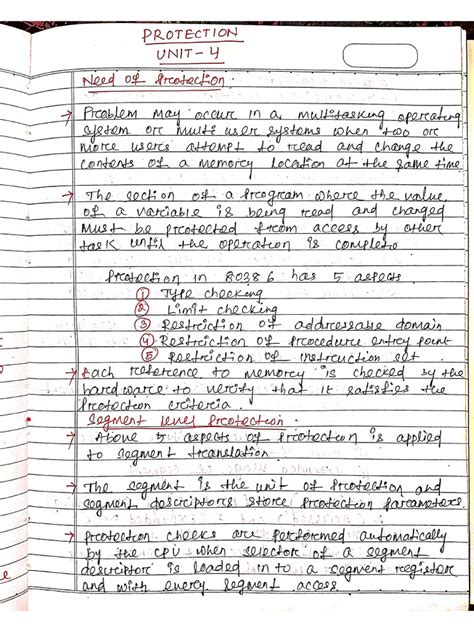 PROTECTION
UNIT-4
Need of Protection.
→ Problem may occur in a multitasking operating
system or multi user systems when two or
more users attempt to read and change the
contents of a memory location at the same time
→ The section of a program where the value
of a variable is being read and changed
must be protected from access by other
task until the operation is complete
Protection in 80386 has 5 aspects
① Type checking
② Limit checking
③ Restriction of addressable domain
④ Restriction of Procedure entry point
⑤ Restriction of instruction set
→ Each reference to memory is checked by the
hardware to verify that it satisfies the
Protection criteria.
Segment level Protection:
→ Above 5 aspects of Protection is applied
to segment translation
→ The segment is the unit of Protection and
segment descriptors store Protection Parameters.
→ Protection checks are performed automatically
by the CPU when selector of a segment
descriptor is loaded in to a segment register
and with every segment access